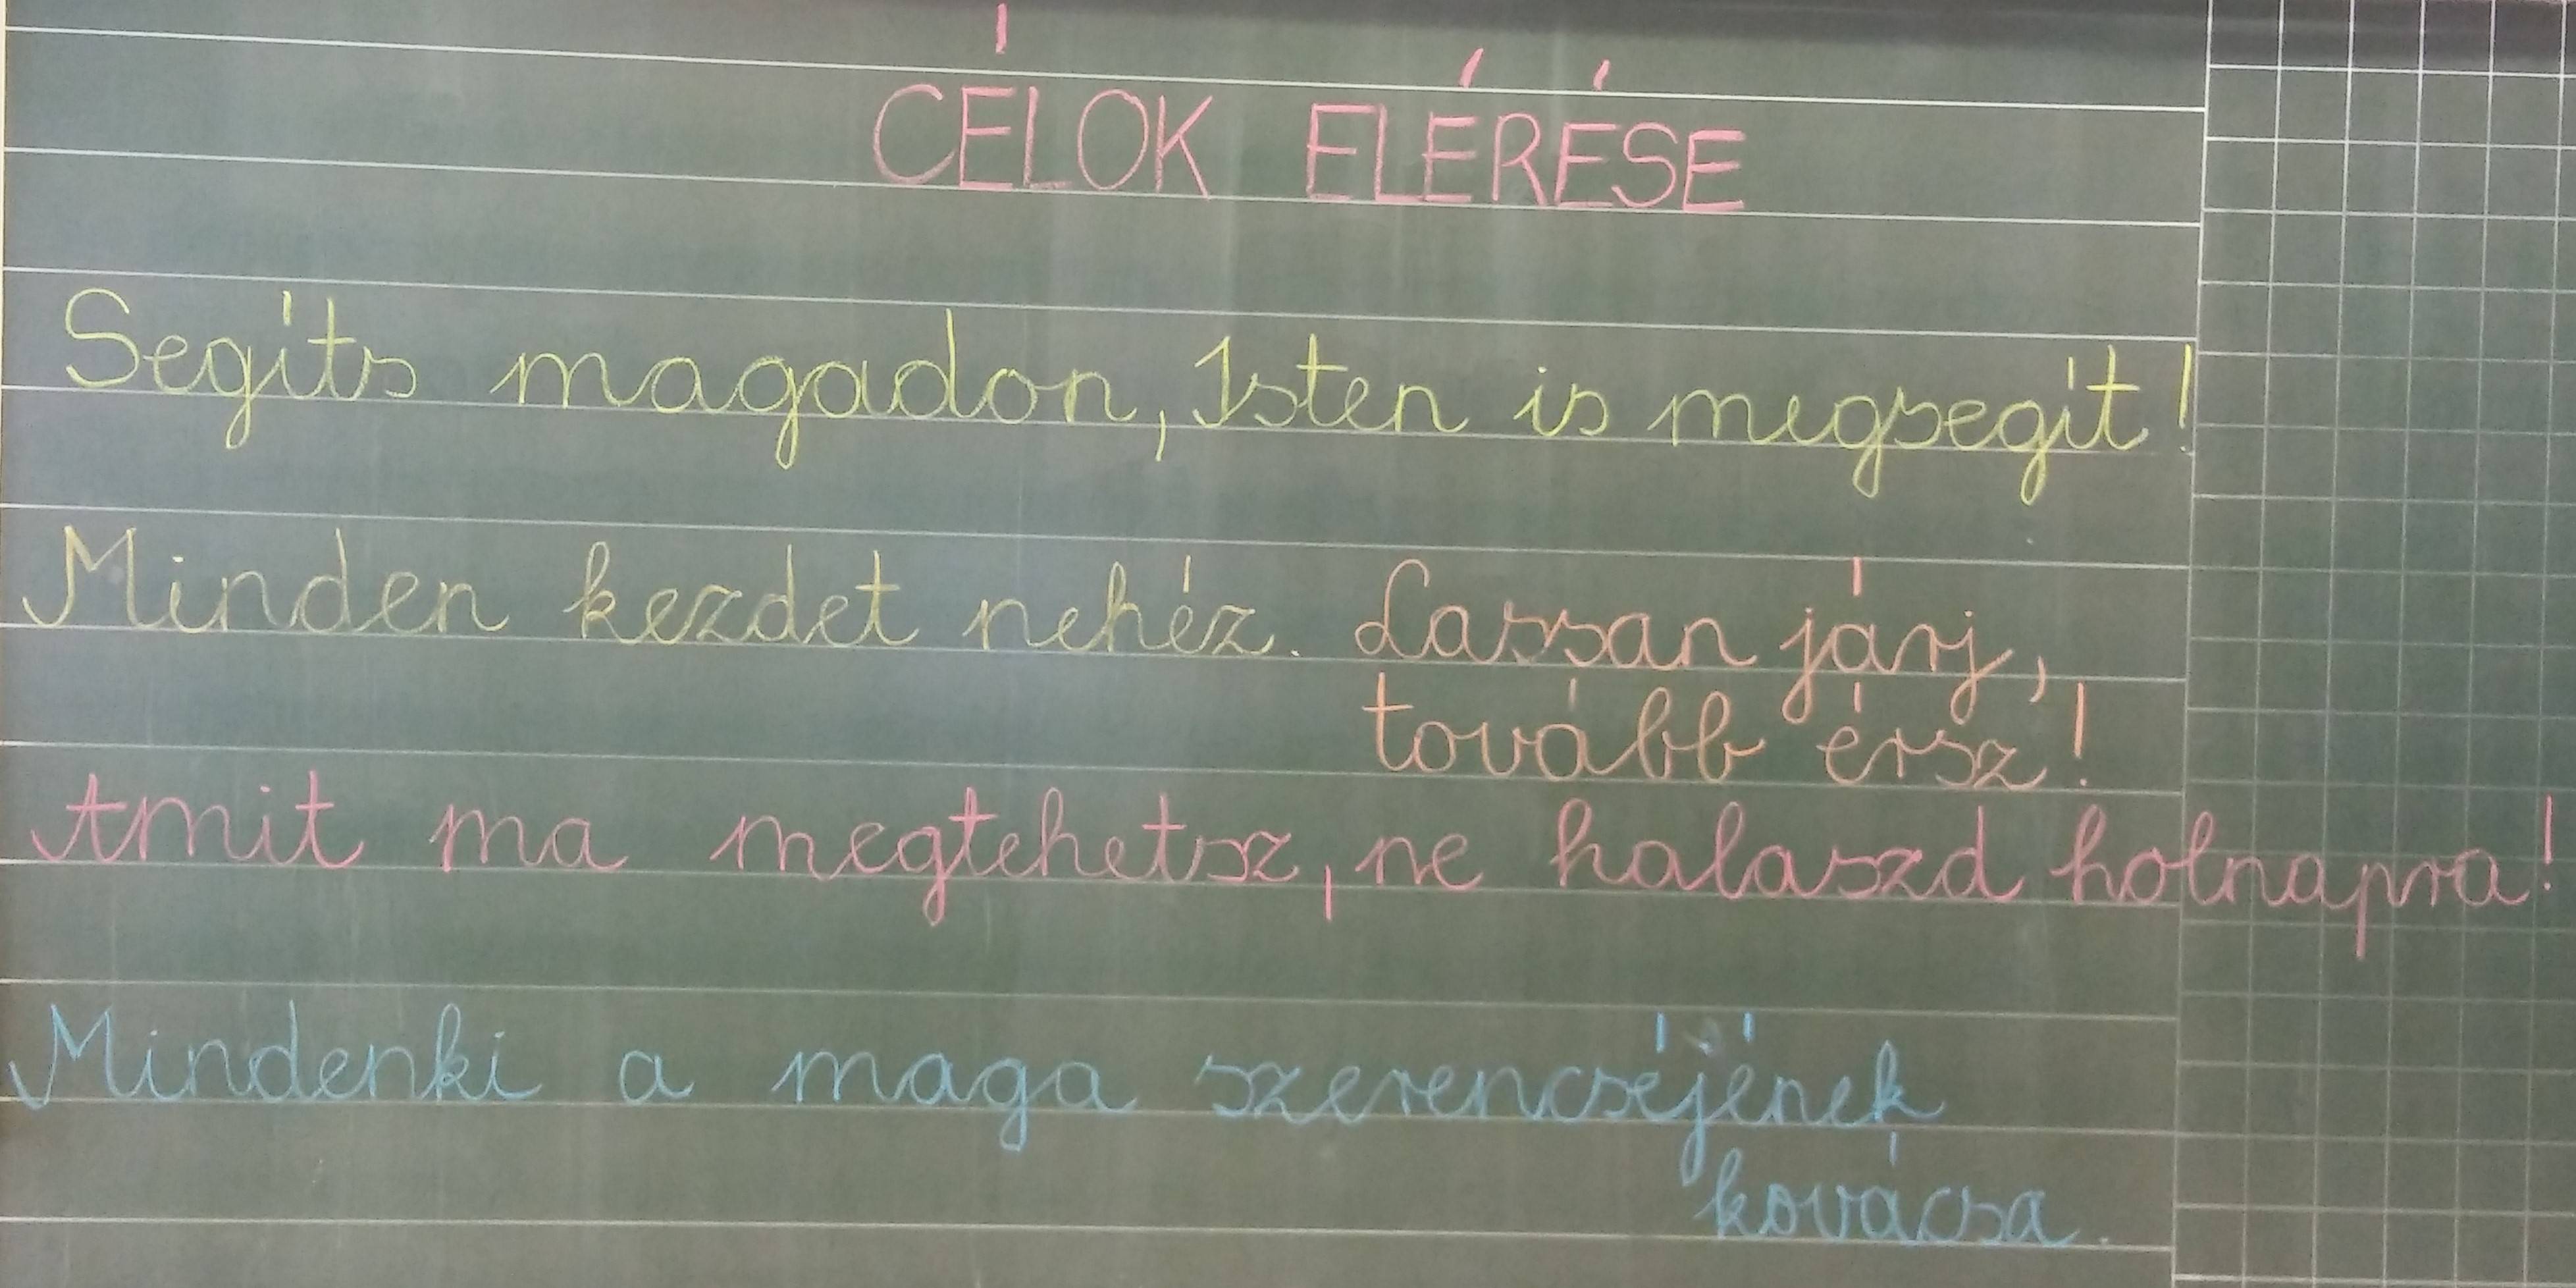 CÉLOK ELÉRÉSE
Segíts magadon, Isten is megsegít!
Minden kezdet nehéz. Lassan járj,
tovább érsz!
Amit ma megtehetsz, ne halaszd holnapra!
Mindenki a maga szerencséjének
kovácsa.